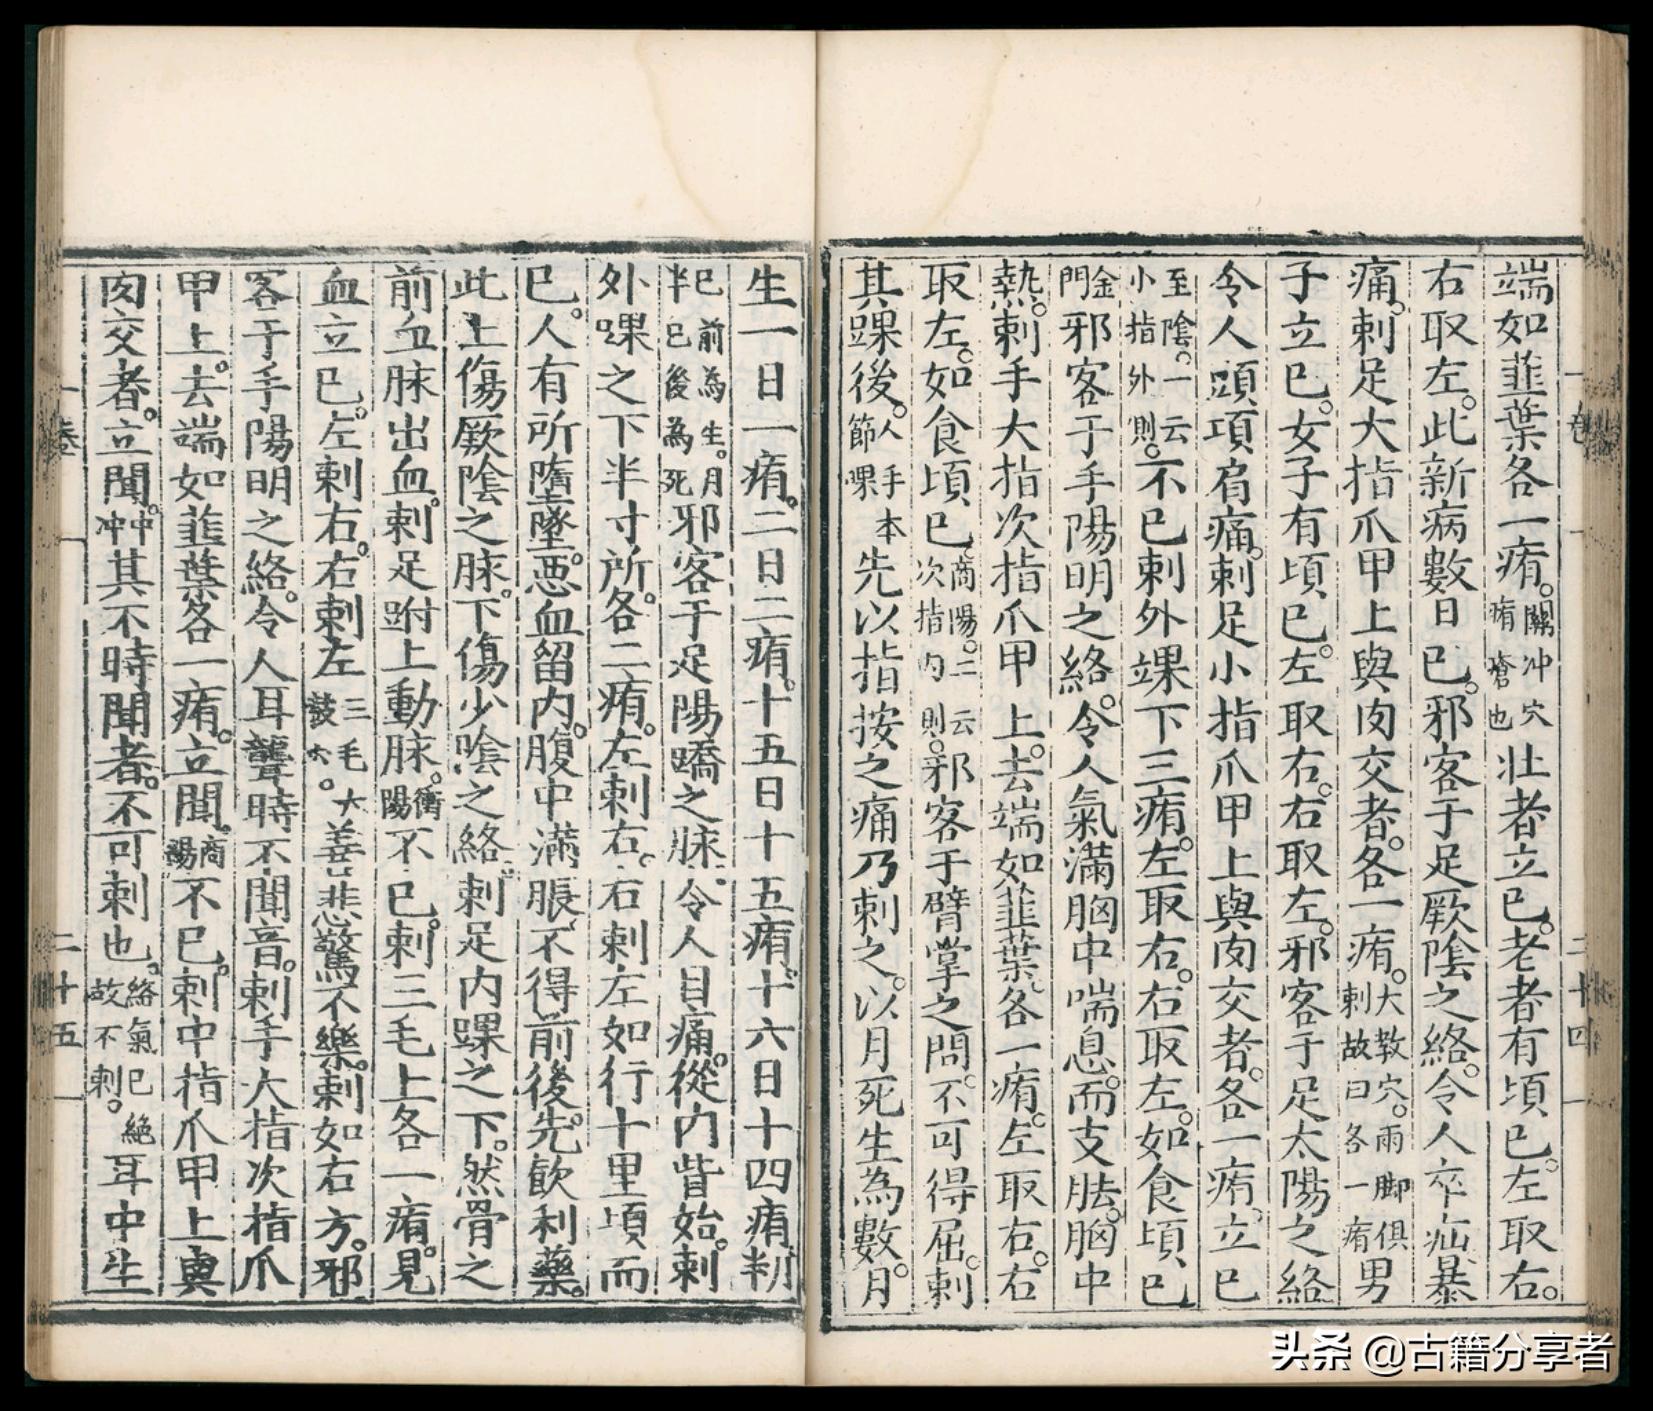 端如韮葉各一痏。關冲穴痏瘡也壯者立已。老者有頃已。左取右。
右取左。此新病數日已。邪客于足厥陰之絡。令人卒疝暴
痛。刺足大指爪甲上與肉交者。各一痏。大敦穴。兩脚俱刺故曰各一痏男
子立已。女子有頃已。左取右。右取左。邪客于足太陽之絡
令人頭項肩痛。刺足小指爪甲上與肉交者。各一痏。立已
至陰。一云小指外則。不已刺外踝下三痏。左取右。右取左。如食頃已
金門邪客于手陽明之絡。令人氣滿胸中喘息。而支胠。胸中
熱。刺手大指次指爪甲上。去端如韮葉。各一痏。左取右。右
取左。如食頃已。商陽。一云次指內則。邪客于臂掌之間。不可得屈。刺
其踝後。人手本節踝先以指按之痛乃刺之。以月死生為數。月
生一日一痏。二日二痏。十五日十五痏。十六日十四痏
已前為生。月半已後為死邪客于足陽蹻之脉。令人目痛。從內眥始。刺
外踝之下半寸所。各二痏。左刺右。右刺左如行十里頃而
已。人有所墮墜。惡血留內。腹中滿脹不得前後。先飲利藥。
此上傷厥陰之脉。下傷少陰之絡。刺足內踝之下。然骨之
前血脉出血。刺足跗上動脉。衝陽不已。刺三毛上各一痏。見
血立已。左刺右。右刺左三毛大敦穴。善悲驚不樂。刺如右方。邪
客于手陽明之絡。令人耳聾時不聞音。刺手大指次指爪
甲上。去端如韮葉各一痏。立聞。商陽不已。刺中指爪甲上與
肉交者。立聞。中冲其不時聞者。不可刺也。絡氣已絕故不刺。耳中生
一卷
二十四
一卷
二十五
头条 @古籍分享者